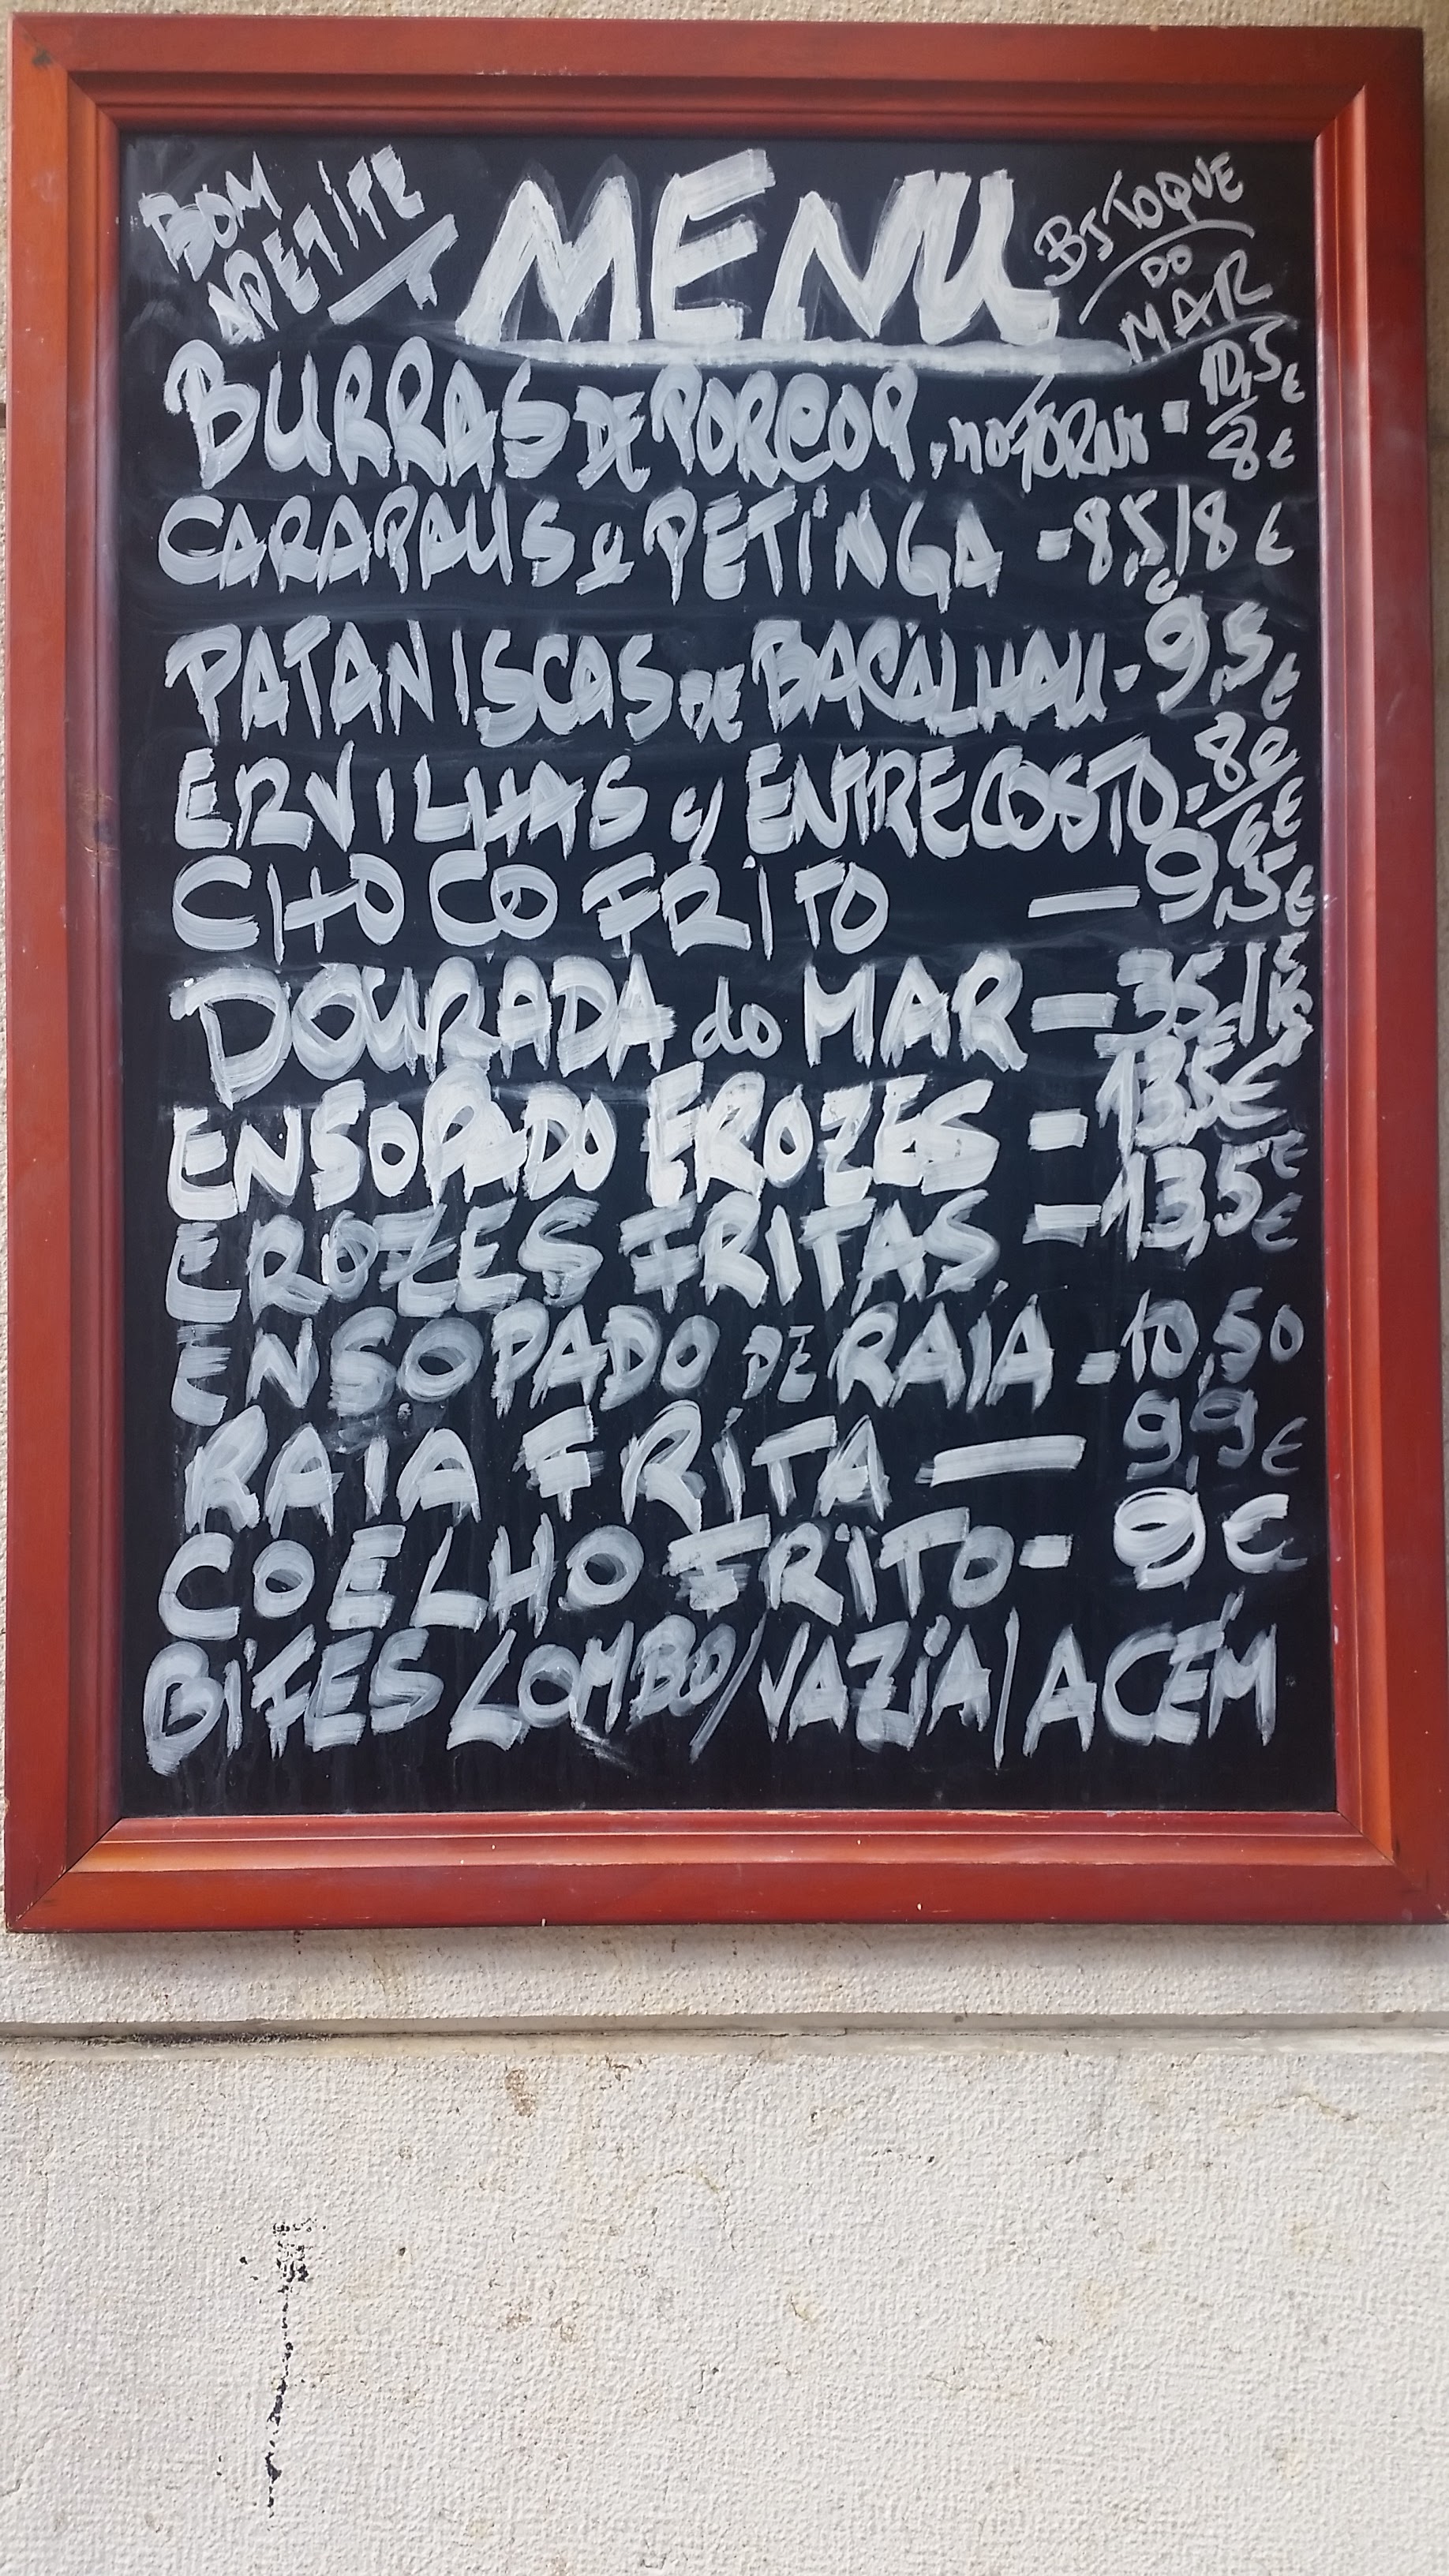 BOM
APETITE
MENU
BITOQUE
DO
MAR
BURRAS DE PORCO P, no FORNO - 10,5 €
8 €
CARAPAUS e PETINGA - 8,5 / 8 €
PATANISCAS DE BACALHAU - 9,5 €
ERVILHAS c/ ENTRECOSTO - 8 €
6 €
CHOCO FRITO — 9,5 €
DOURADA do MAR — 35 € / K
ENSOPADO EROZES - 13,5 €
EROZES FRITAS - 13,5 €
ENSOPADO DE RAIA - 10,50
RAIA FRITA — 9,9 €
COELHO FRITO - 9 €
BIFES LOMBO / VAZIA / ACÉM